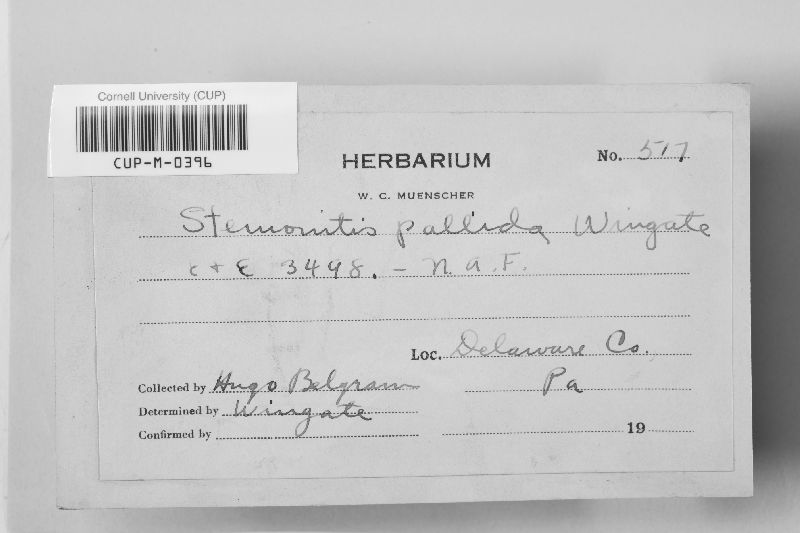 Cornell University (CUP)
CUP-M-0396
HERBARIUM
No. 517
W. C. MUENSCHER
Stemonitis pallida Wingate
C + E 3498. - N. A. F.
Loc. Delaware Co.
Pa
Collected by Hugo Belgram
Determined by Wingate
Confirmed by
19